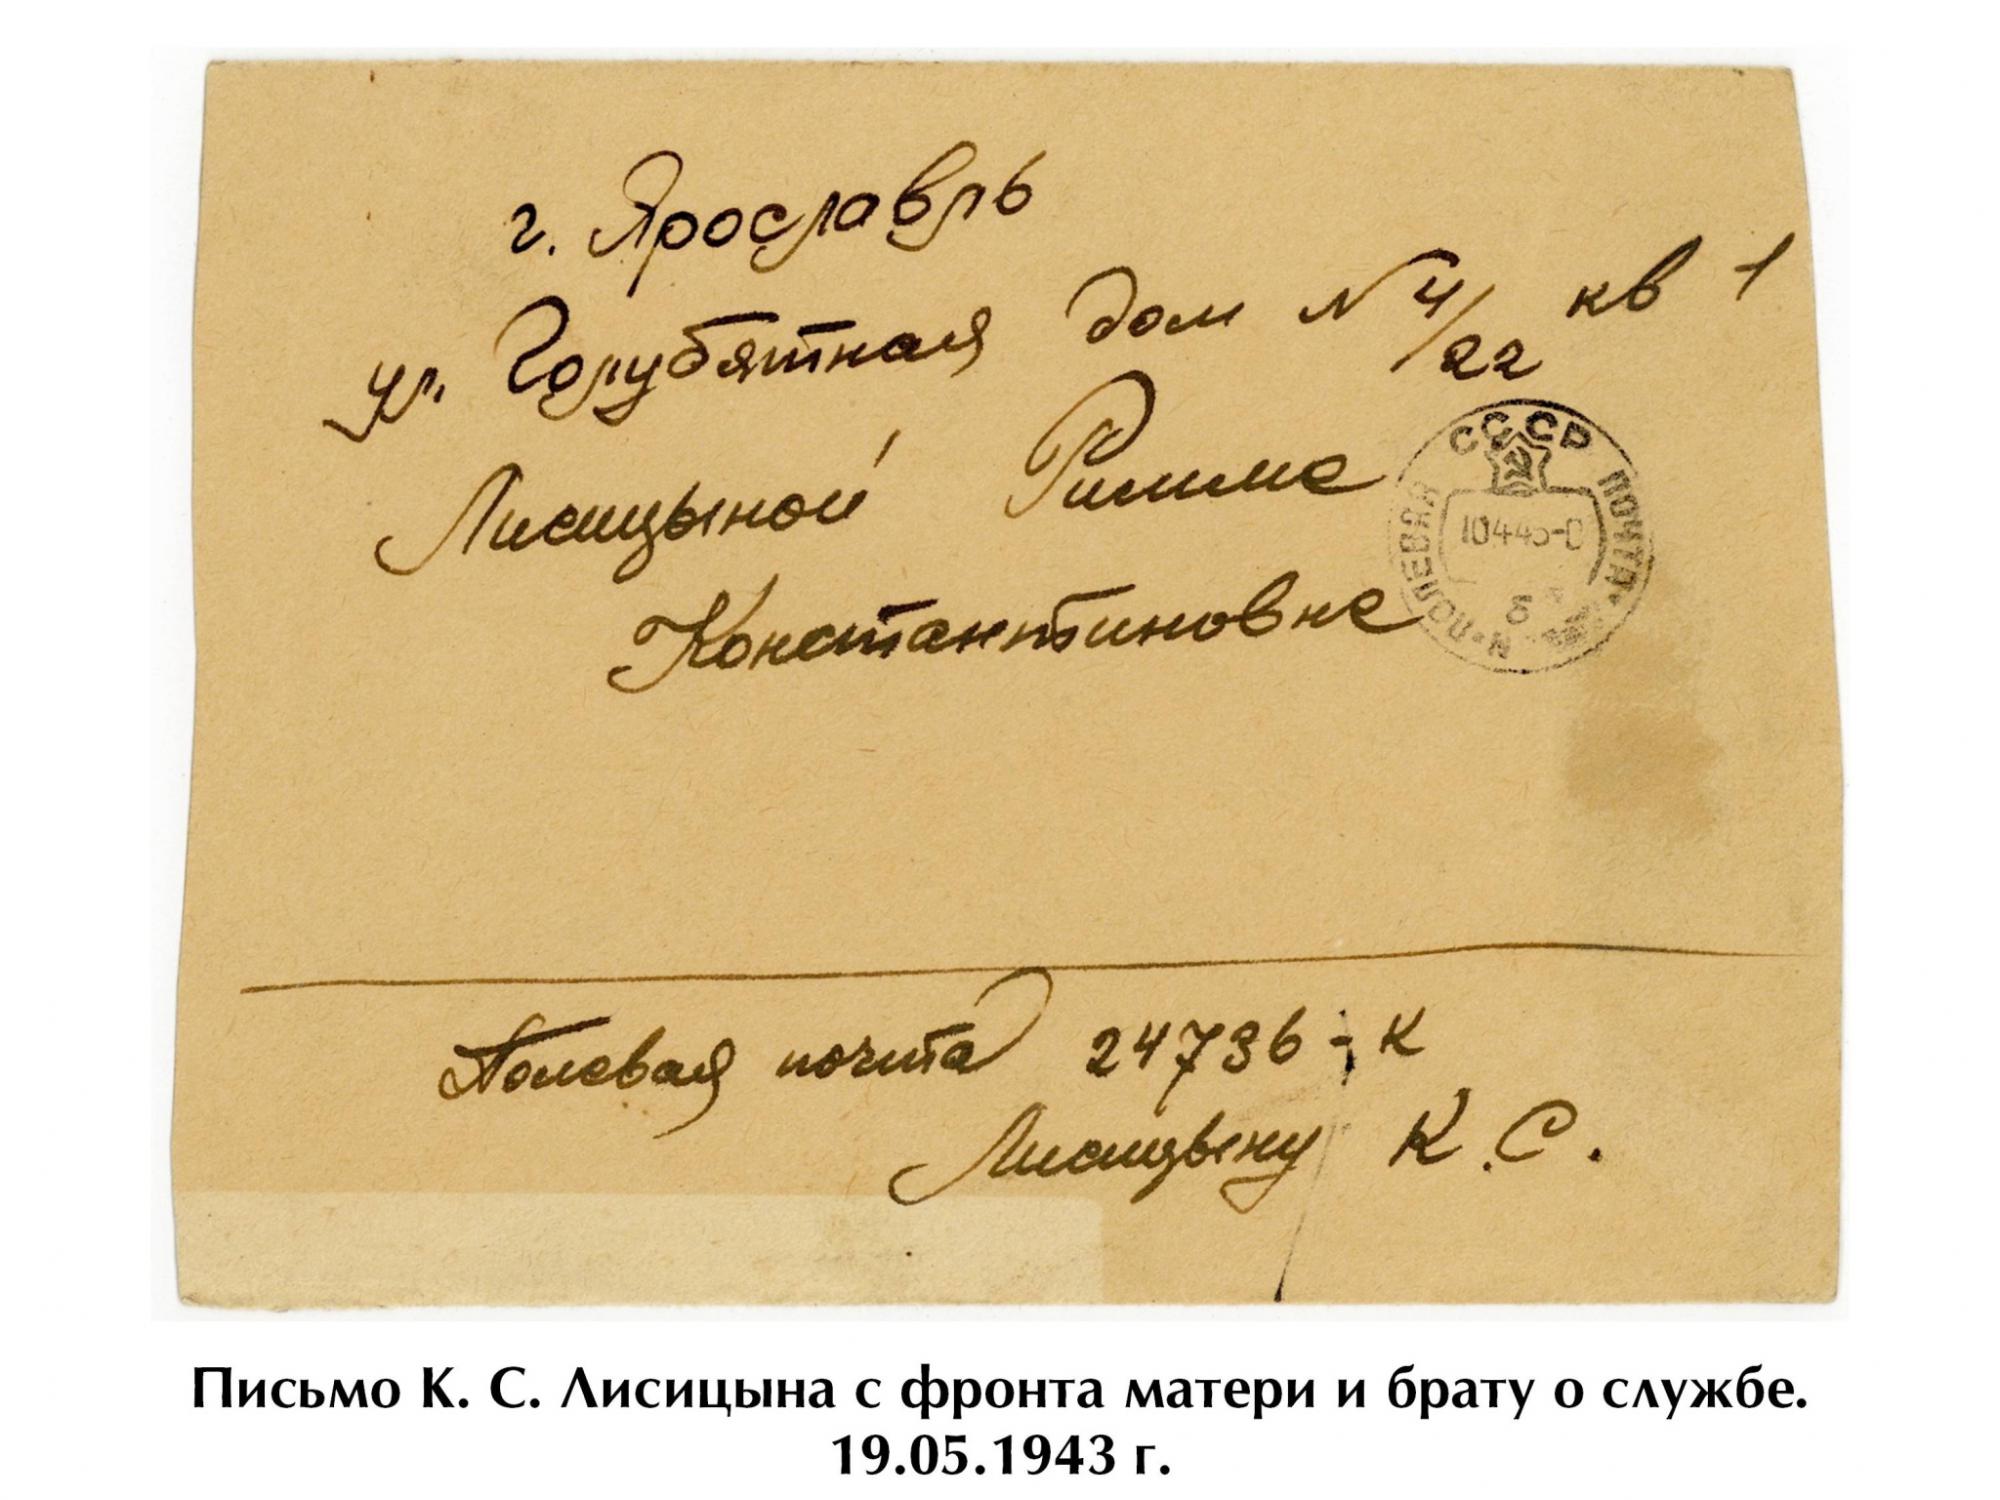 г. Ярославль
ул. Голубятная дом N 4/22 кв 1
Лисицыной Римме
Константиновне
СССР
ПОЛЕВАЯ ПОЧТА
10445
Полевая почта 24736-К
Лисицыну К.С.
Письмо К. С. Лисицына с фронта матери и брату о службе.
19.05.1943 г.